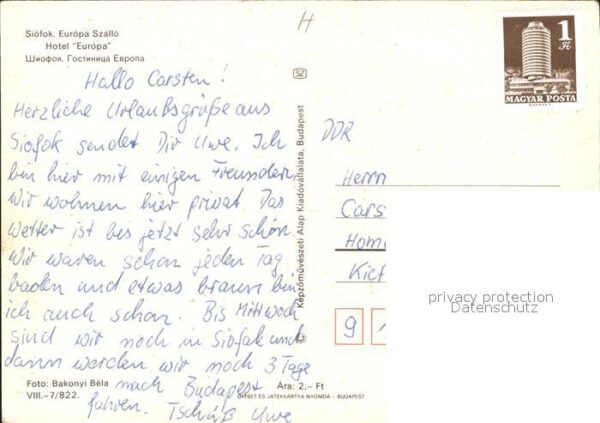 Siófok. Európa Szálló
Hotel "Európa"
Шиофок. Гостиница Европа
H
1 Ft
MAGYAR POSTA
SZ
Hallo Carsten!
Herzliche Urlaubsgrüße aus
Siofok sendet Dir Uwe. Ich
bin hier mit einigen Freunden.
Wir wohnen hier privat. Das
Wetter ist bis jetzt sehr schön.
Wir waren schon jeden Tag
baden und etwas braun bin
ich auch schon. Bis Mittwoch
sind wir noch in Siofok und
dann werden wir noch 3 Tage
nach Budapest
fahren. Tschüß Uwe
Képzőművészeti Alap Kiadóvállalata, Budapest
DDR
Herrn
Cars
Hom
Kief
9
privacy protection
Datenschutz
Foto: Bakonyi Béla
VIII.–7/822.
Ára: 2,– Ft
OFFSET ÉS JÁTÉKKÁRTYA NYOMDA – BUDAPEST